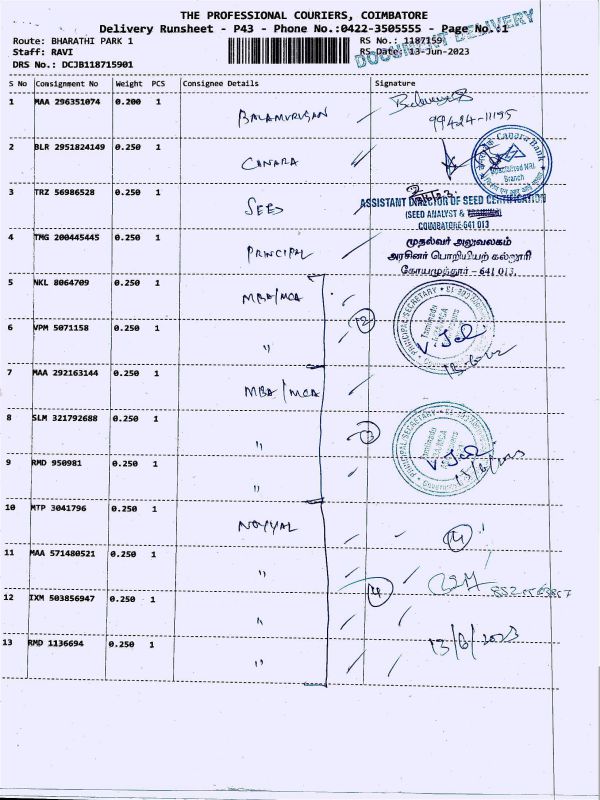 THE PROFESSIONAL COURIERS, COIMBATORE
Delivery Runsheet - P43 - Phone No.:0422-3505555 - Page No.:1
DOCUMENT DELIVERY
Route: BHARATHI PARK 1 RS No.: 1187159
Staff: RAVI RS Date: 13-Jun-2023
DRS No.: DCJB118715901
S No Consignment No Weight PCS Consignee Details Signature
1 MAA 296351074 0.200 1 BALAMURUGAN
99424-11195
2 BLR 2951824149 0.250 1 CANARA
Canara Bank
Specialized NRI
Branch
3 TRZ 56986528 0.250 1 SEED
ASSISTANT DIRECTOR OF SEED CERTIFICATION
(SEED ANALYST &
COIMBATORE-641 013
4 TMG 200445445 0.250 1 PRINCIPAL
முதல்வர் அலுவலகம்
அரசினர் பொறியியற் கல்லூரி
கோயமுத்தூர் - 641 013.
5 NKL 8064709 0.250 1 MBA/MCA
PRINCIPAL SECRETARY
Tamilnadu
6 VPM 5071158 0.250 1 "
12
7 MAA 292163144 0.250 1 MBA/MCA
8 SLM 321792688 0.250 1 "
PRINCIPAL SECRETARY
Tamilnadu
9 RMD 950981 0.250 1 "
10 MTP 3041796 0.250 1 NOYYAL
11 MAA 571480521 0.250 1 "
12 IXM 503856947 0.250 1 "
13 RMD 1136694 0.250 1 "
13/6/2023